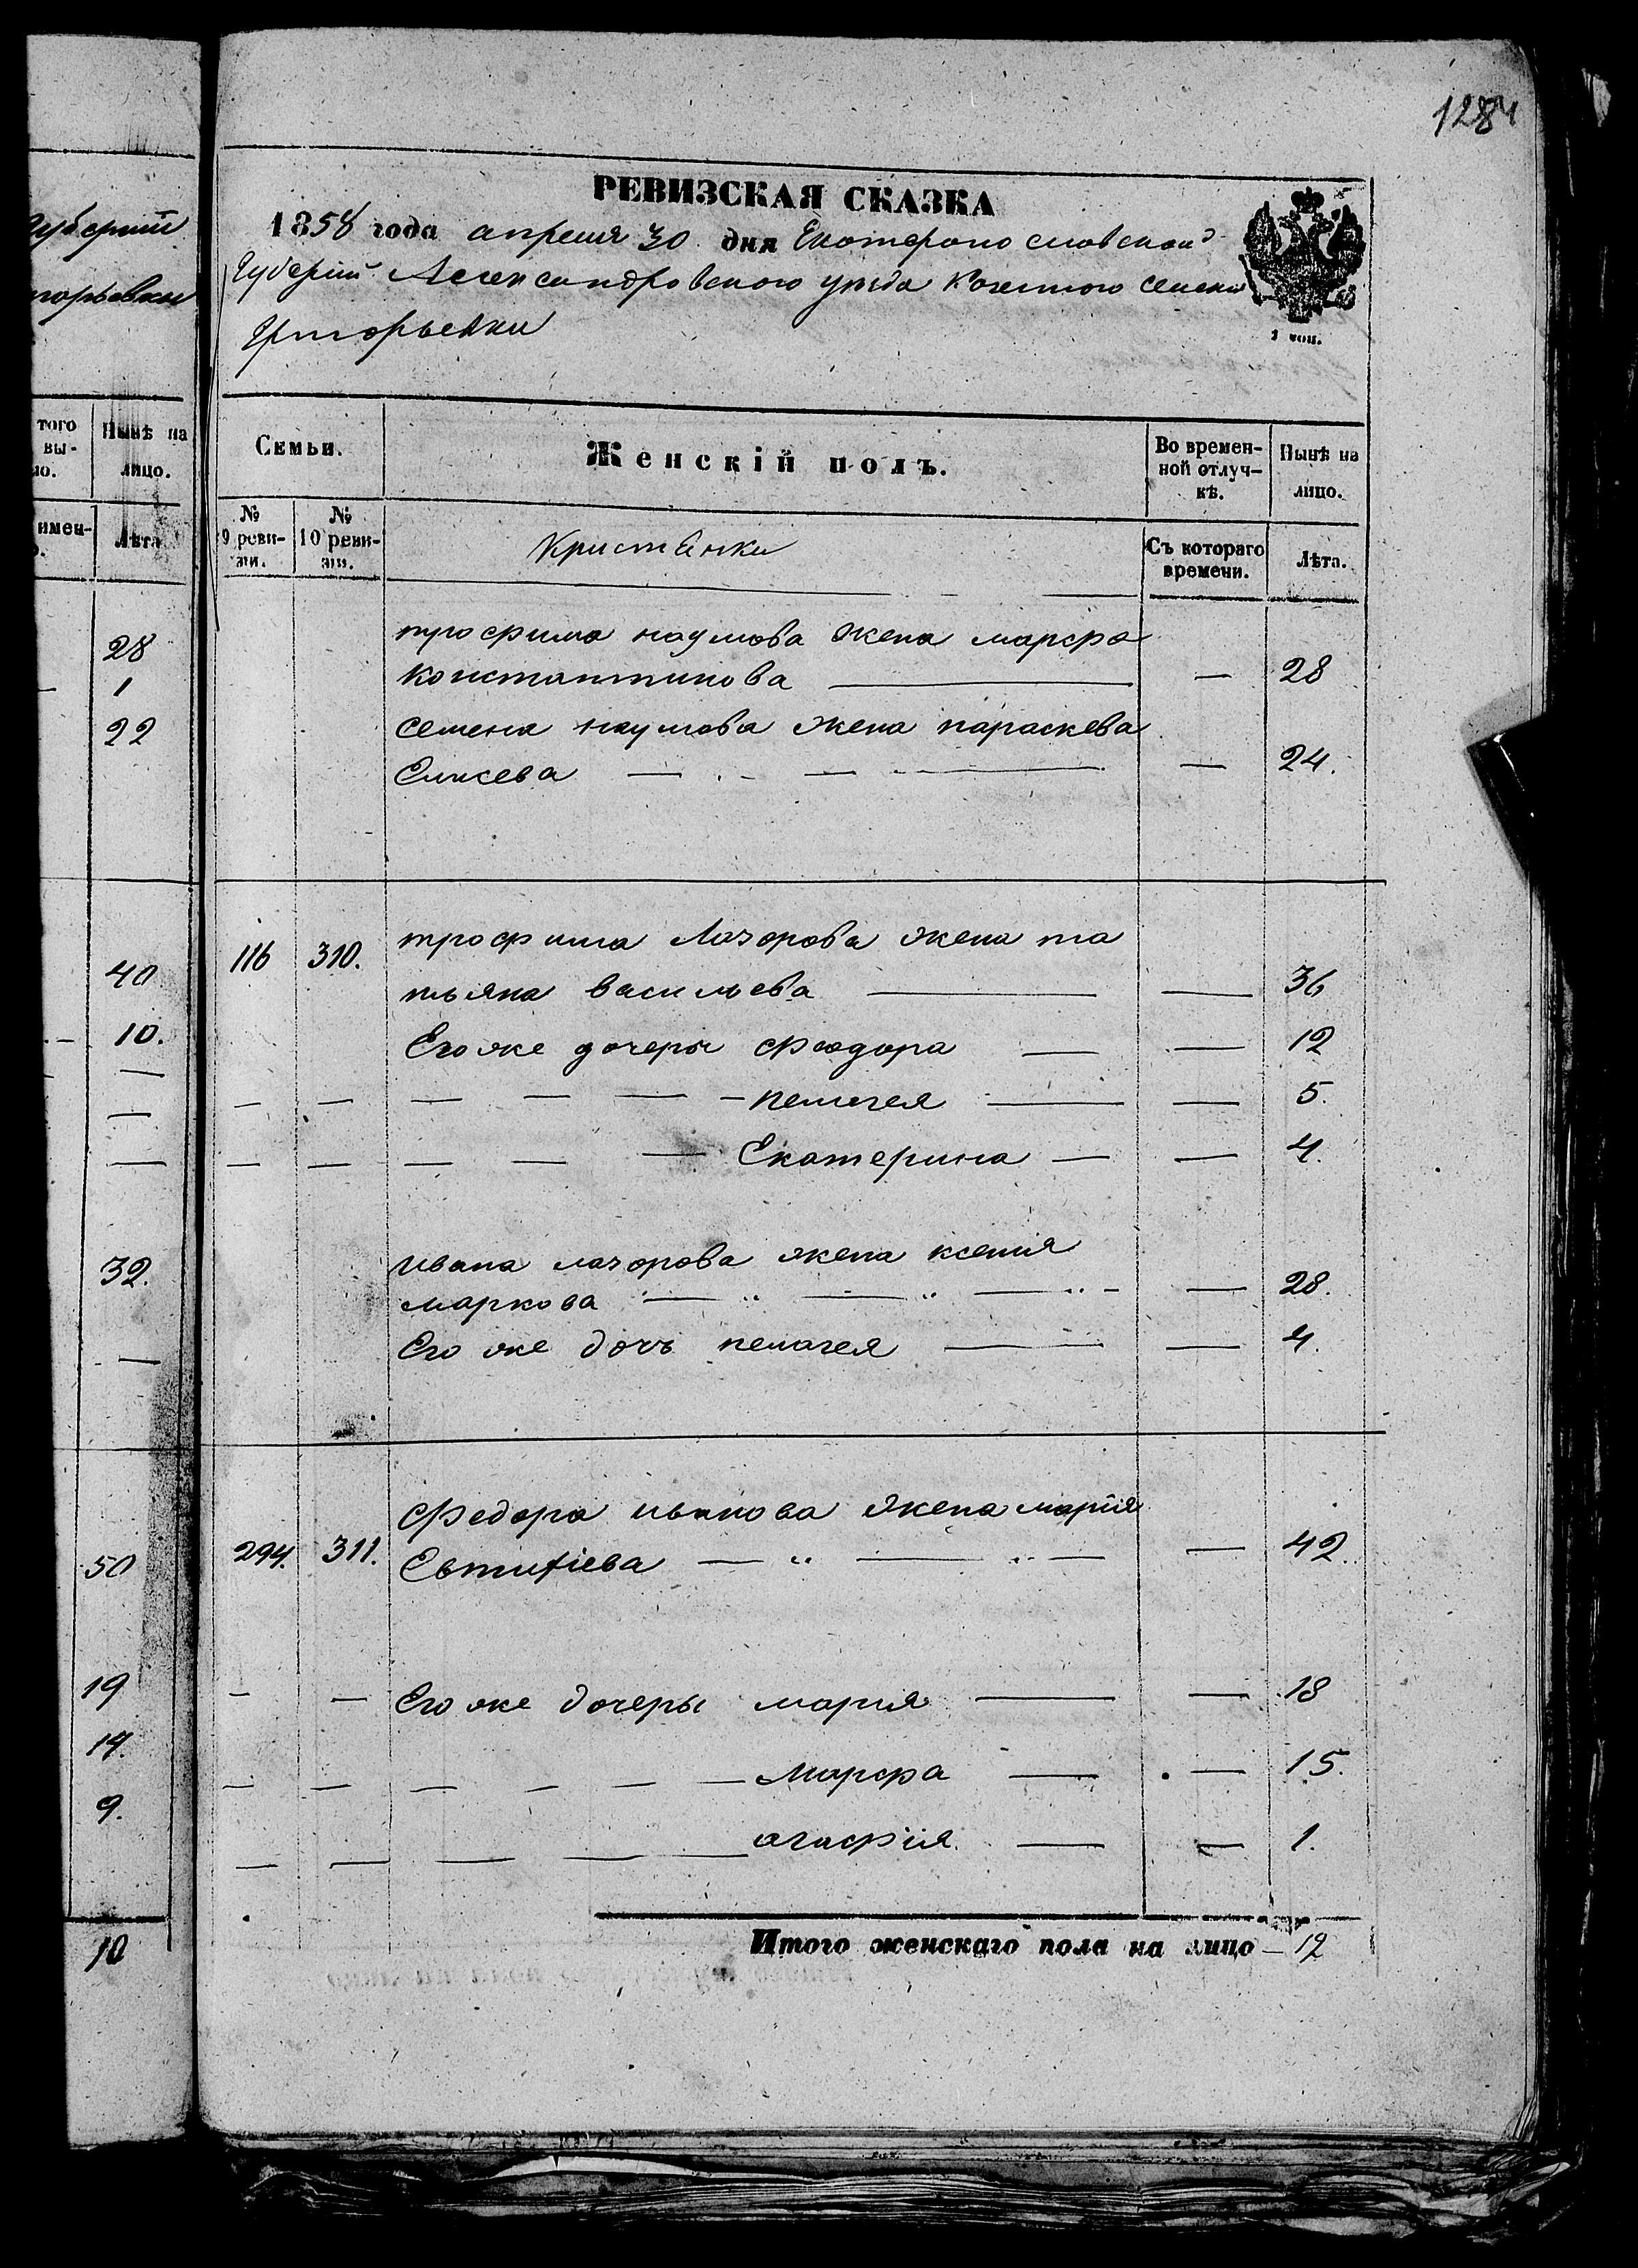 1284
губерніи
горьевки
того вы-
ло.
Нынѣ на
лицо.
имен-
о.
Лѣта
28
1
22
40
10.
32.
50
19
14.
9.
10
РЕВИЗСКАЯ СКАЗКА
1858 года апреля 30 дня Екатеронославской
Губерніи Александровского уезда Казенного селени
Григорьевки
1 коп.
Семьи.
Женскій полъ.
Во времен-
ной отлуч-
кѣ.
Нынѣ на
лицо.
№
9 реви-
зіи.
№
10 реви-
зіи.
Кристянки
Съ котораго
времени.
Лѣта.
трофима наумова жена марфа
константинова — 28
семена наумова жена параскева
Елисева — 24.
116 310. трофима Лазорова жена та
тьяна васильева — 36
Его же дочеры Феодора — 12
— пелагея — 5.
— Екатерина — 4.
ивана лазорова жена ксения
маркова — 28.
Его же дочъ пелагея — 4.
Федора иванова жена марія
294. 311. Евтифіева — 42.
Его же дочеры мария — 18
— Марфа — 15.
— агафія — 1.
Итого женскаго пола на лицо — 12